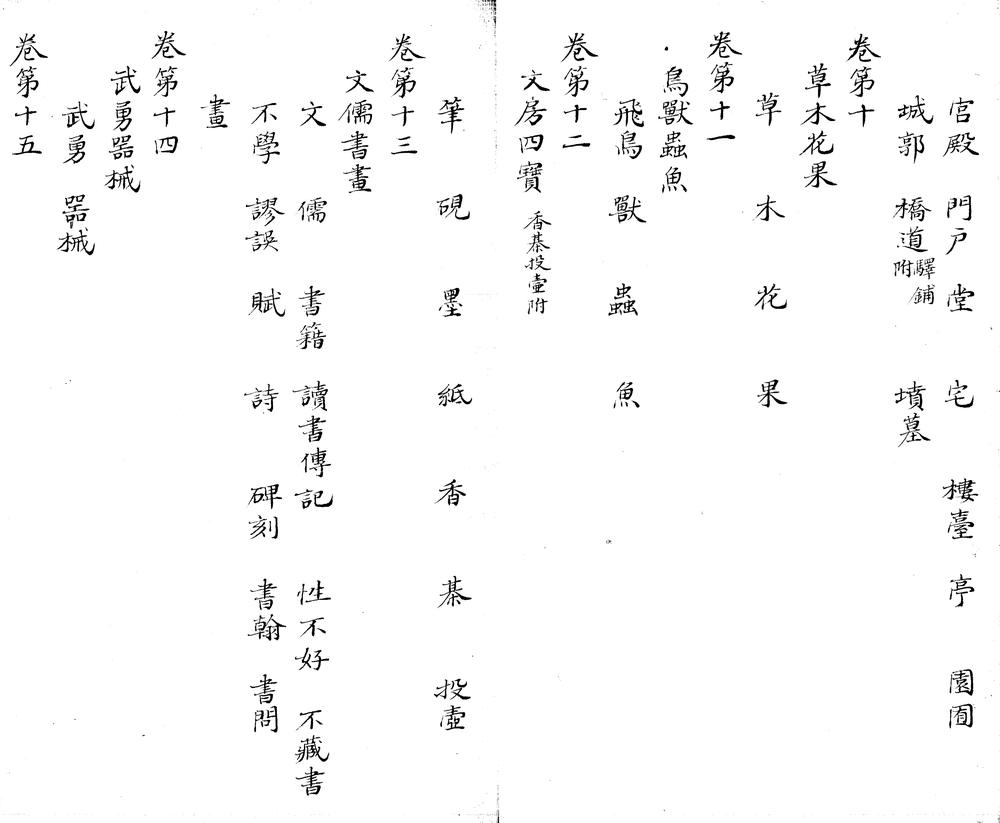 宮殿 門戶 堂 宅 樓臺 亭 園囿
城郭 橋道 驛鋪附 墳墓
卷第十
草木花果
草 木 花 果
卷第十一
鳥獸蟲魚
飛鳥 獸 蟲 魚
卷第十二
文房四寶 香棊投壺附
筆 硯 墨 紙 香 棊 投壺
卷第十三
文儒書畫
文 儒 書籍 讀書傳記 性不好 不藏書
不學 謬誤 賦 詩 碑刻 書翰 書問
畫
卷第十四
武勇器械
武勇 器械
卷第十五